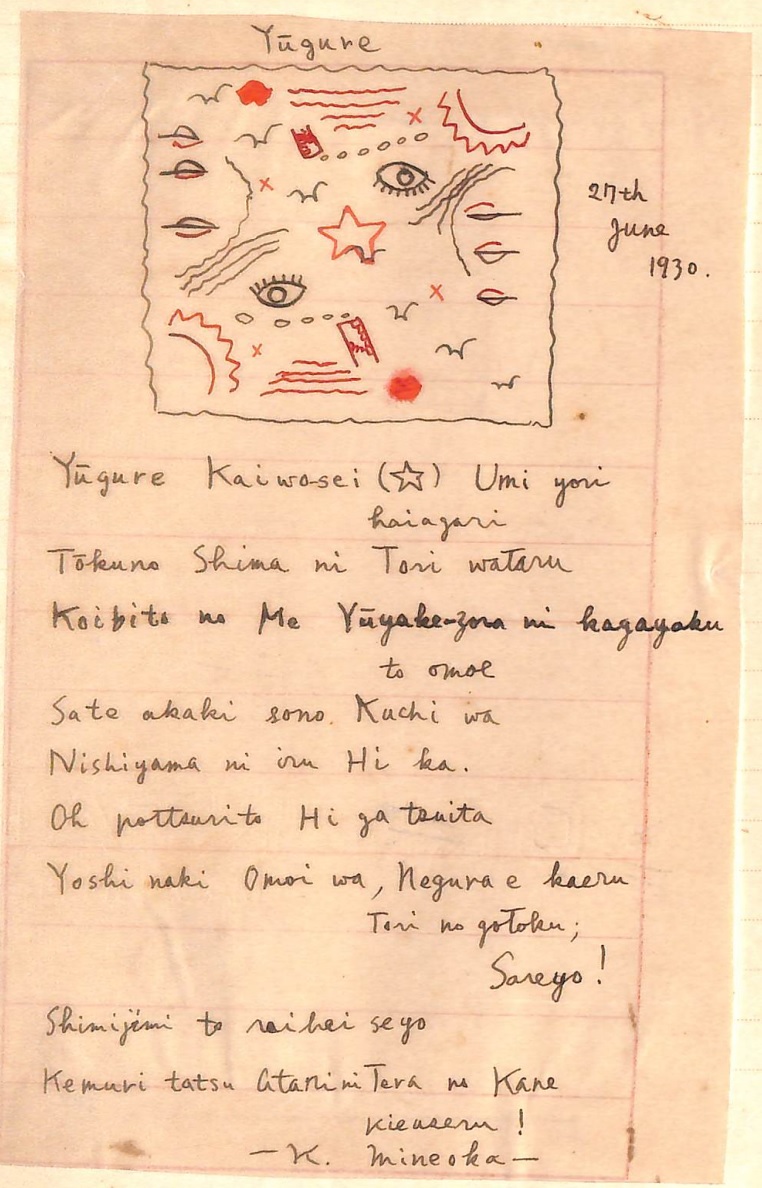 Yūgure
27th
June
1930.
Yūgure Kaiwo-sei (☆) Umi yori
haiagari
Tōkuno Shima ni Tori wataru
Koibito no Me Yūyake-zora ni kagayaku
to omoe
Sate akaki sono Kuchi wa
Nishiyama ni iru Hi ka.
Oh pottsurito Hi ga tsuita
Yoshi naki Omoi wa, Negura e kaeru
Tori no gotoku;
Sareyo!
Shimijimi to reihei seyo
Kemuri tatsu Atari ni Tera no Kane
kieuseru!
—K. Mineoka—